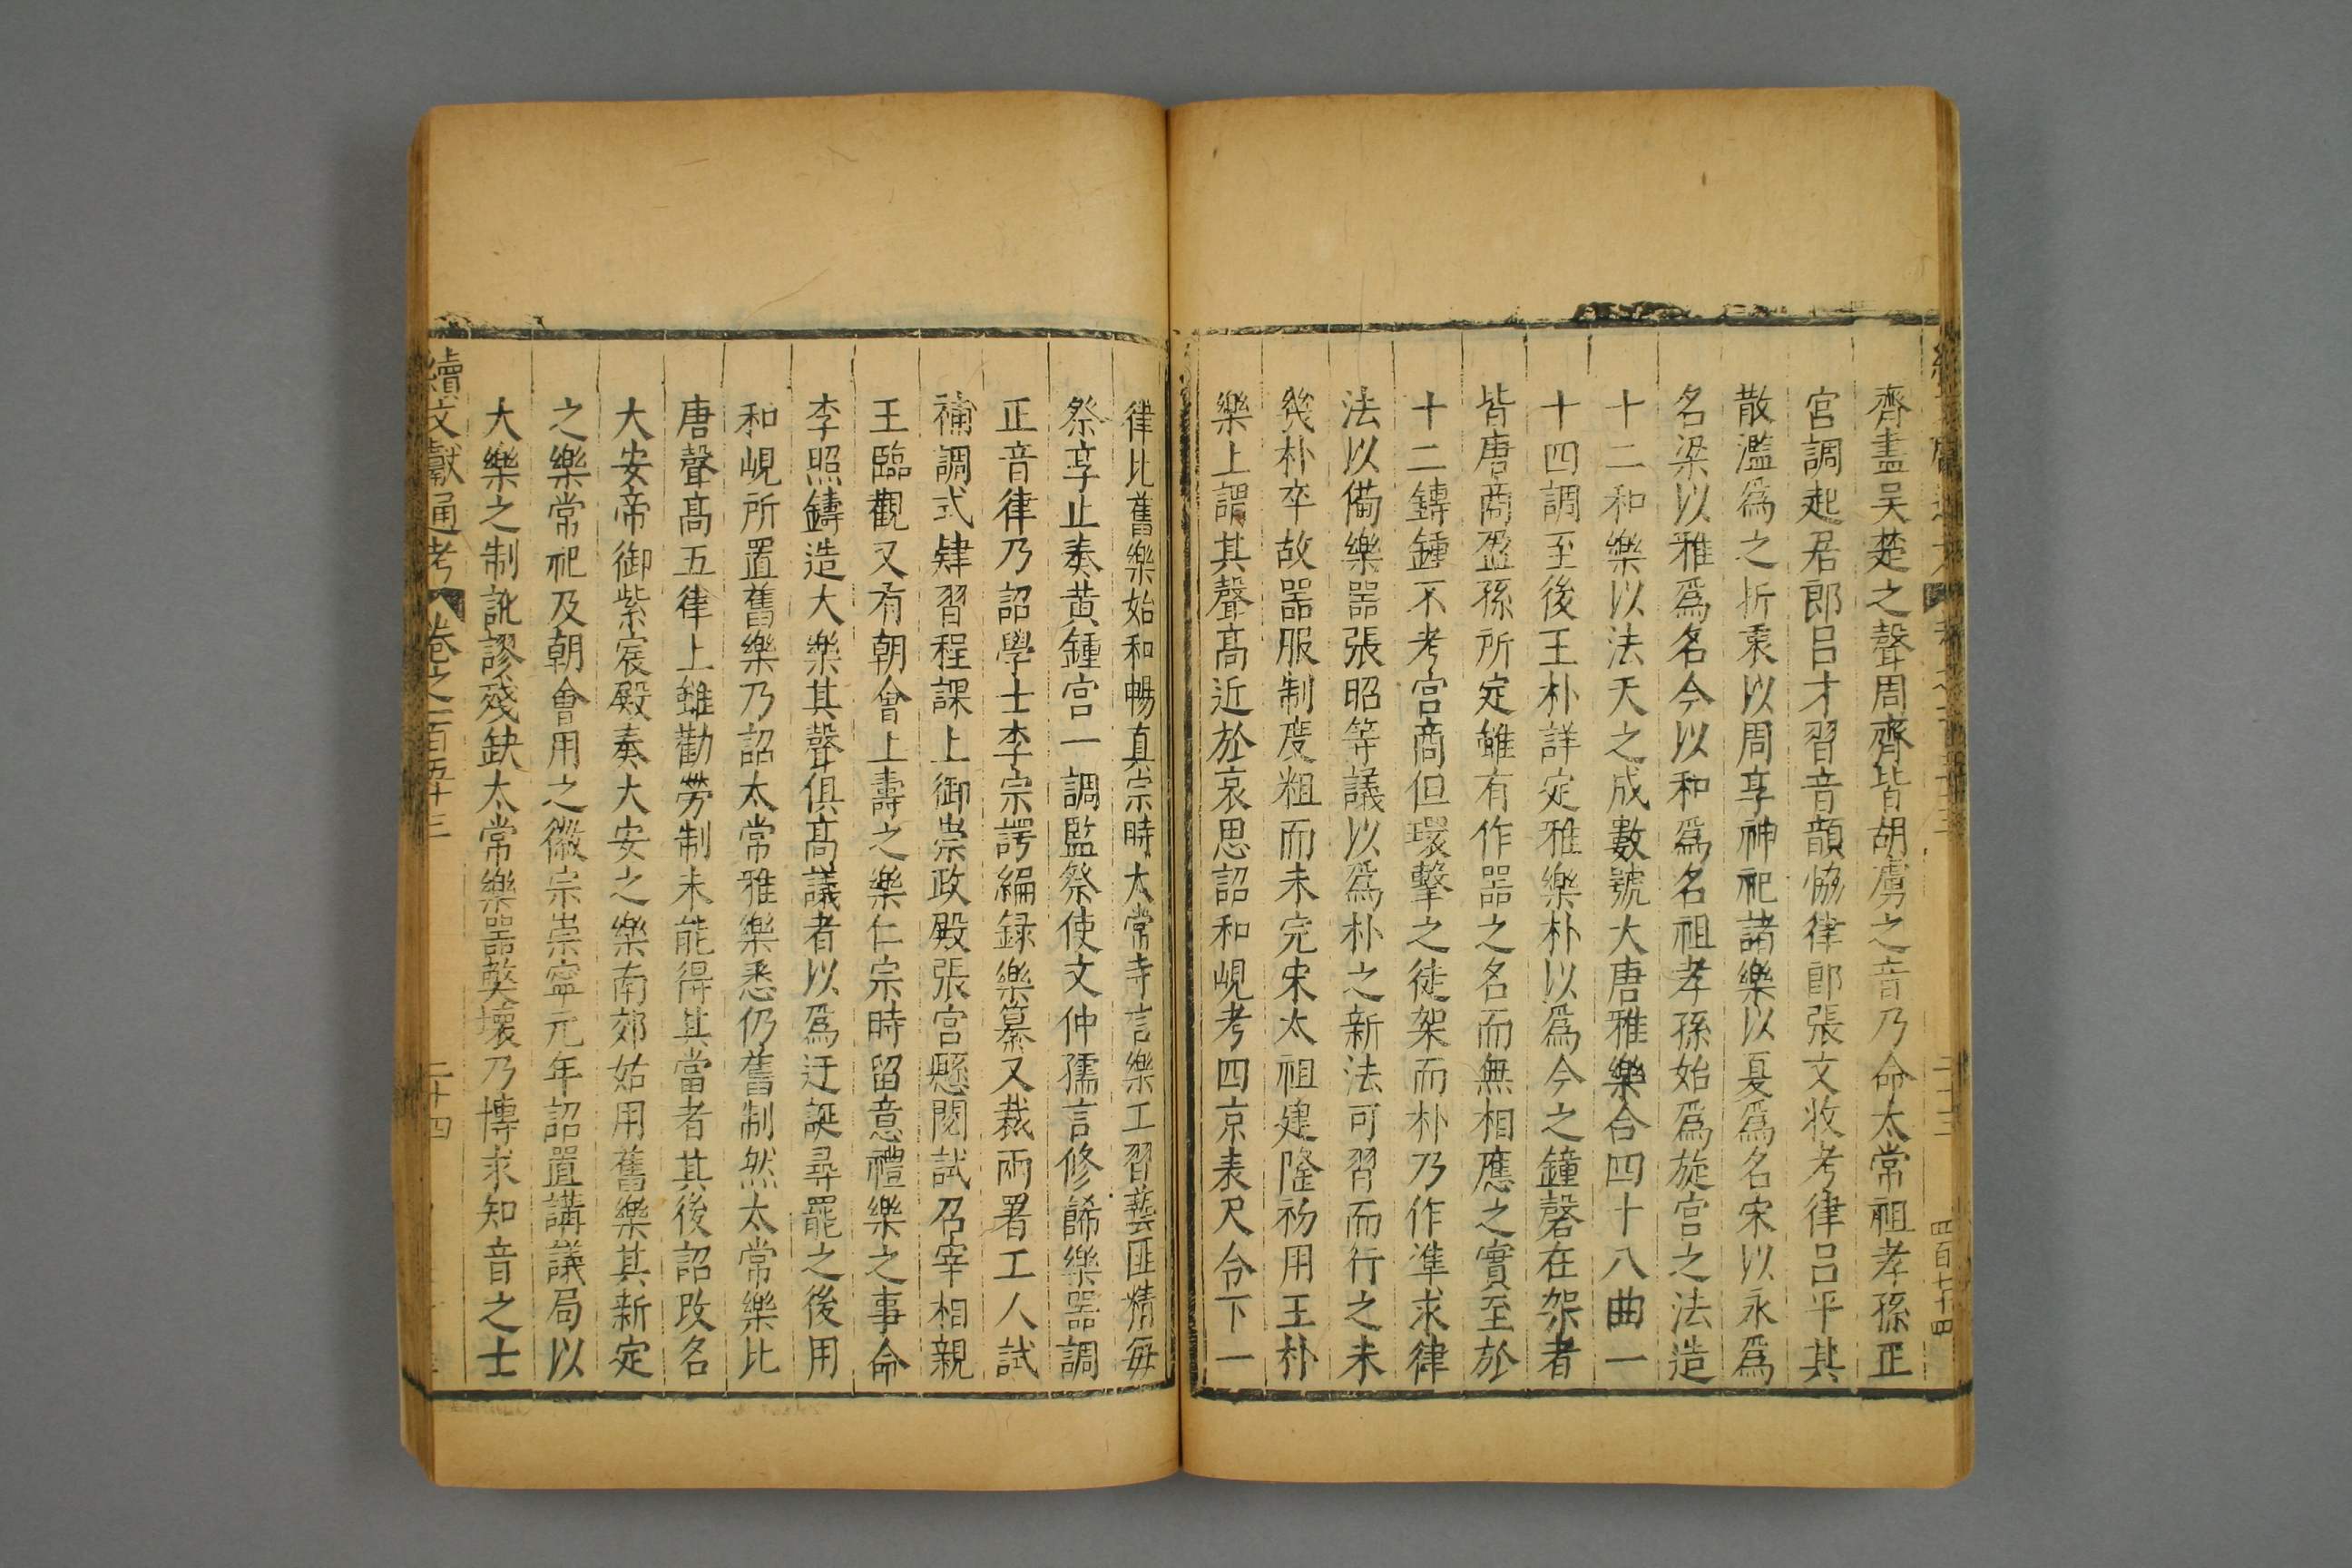 齊盡吳楚之聲周齊皆胡虜之音乃命太常祖孝孫正
宮調起居郎呂才習音韻恊律郎張文收考律呂平其
散濫爲之折衷以周享神祀諸樂以夏爲名宋以永爲
名梁以雅爲名今以和爲名祖孝孫始爲旋宮之法造
十二和樂以法天之成數號大唐雅樂合四十八曲一
十四調至後王朴詳定雅樂朴以爲今之鐘磬在架者
皆唐商盈孫所定雖有作器之名而無相應之實至於
十二鎛鍾不考宮商但環擊之徒架而朴乃作準求律
法以備樂器張昭等議以爲朴之新法可習而行之未
幾朴卒故器服制度粗而未完宋太祖建隆初用王朴
樂上謂其聲高近於哀思詔和峴考四京表尺令下一
律比舊樂始和暢真宗時太常寺言樂工習藝匪精每
祭享止奏黃鍾宮一調監祭使文仲孺言修飾樂器調
正音律乃詔學士李宗諤編録樂纂又裁兩署工人試
補調式肄習程課上御崇政殿張宮懸閱試召宰相親
王臨觀又有朝會上壽之樂仁宗時留意禮樂之事命
李照鑄造大樂其聲俱高議者以爲迂誕尋罷之後用
和峴所置舊樂乃詔太常雅樂悉仍舊制然太常樂比
唐聲高五律上雖勤勞制未能得其當者其後詔改名
大安帝御紫宸殿奏大安之樂南郊姑用舊樂其新定
之樂常祀及朝會用之徽宗崇寧元年詔置講議局以
大樂之制訛謬殘缺太常樂器獘壞乃博求知音之士
續文獻通考 卷之一百五十三 二十四